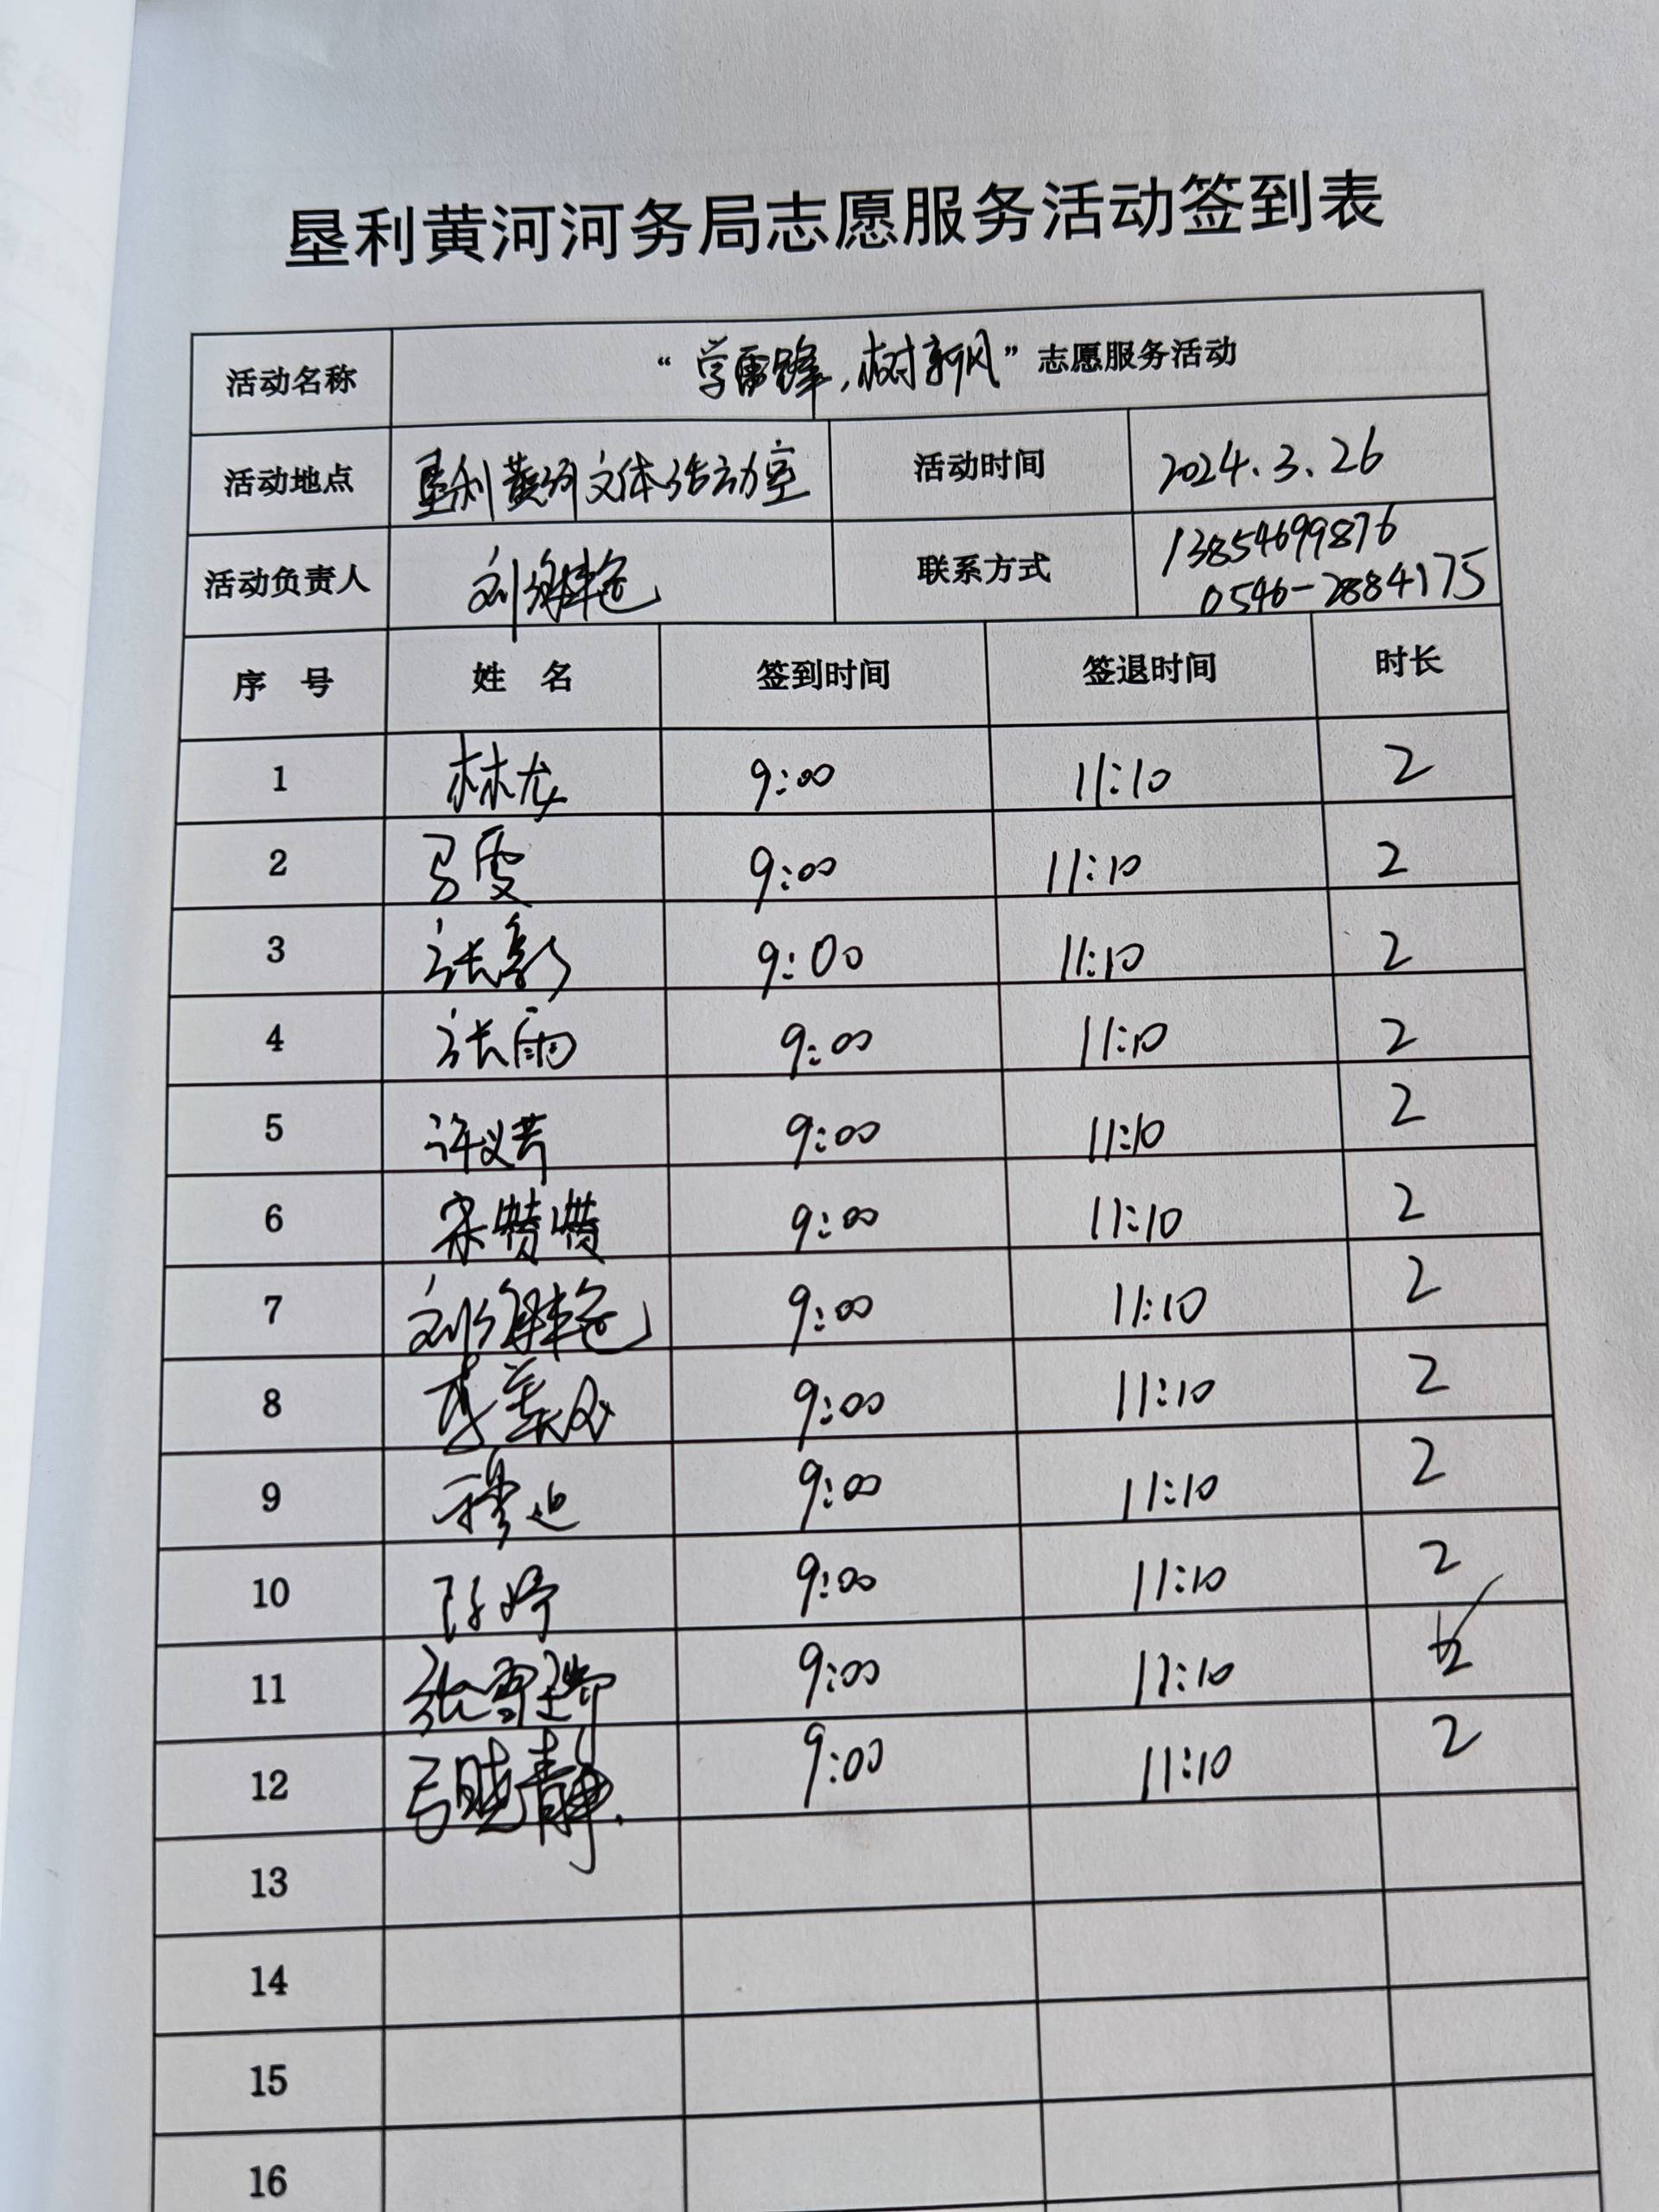 垦利黄河河务局志愿服务活动签到表
活动名称 “学雷锋，树新风”志愿服务活动
活动地点 垦利黄河文体活动室 活动时间 2024.3.26
活动负责人 刘 联系方式 13854699876
0546-2884175
序 号 姓 名 签到时间 签退时间 时长
1 林龙 9:00 11:10 2
2 马雯 9:00 11:10 2
3 张彰 9:00 11:10 2
4 张雨 9:00 11:10 2
5 许义芳 9:00 11:10 2
6 宋特特 9:00 11:10 2
7 刘 9:00 11:10 2
8 李美 9:00 11:10 2
9 穆迪 9:00 11:10 2
10 陈婷 9:00 11:10 2
11 张雪 9:00 11:10 2
12 晓静 9:00 11:10 2
13
14
15
16